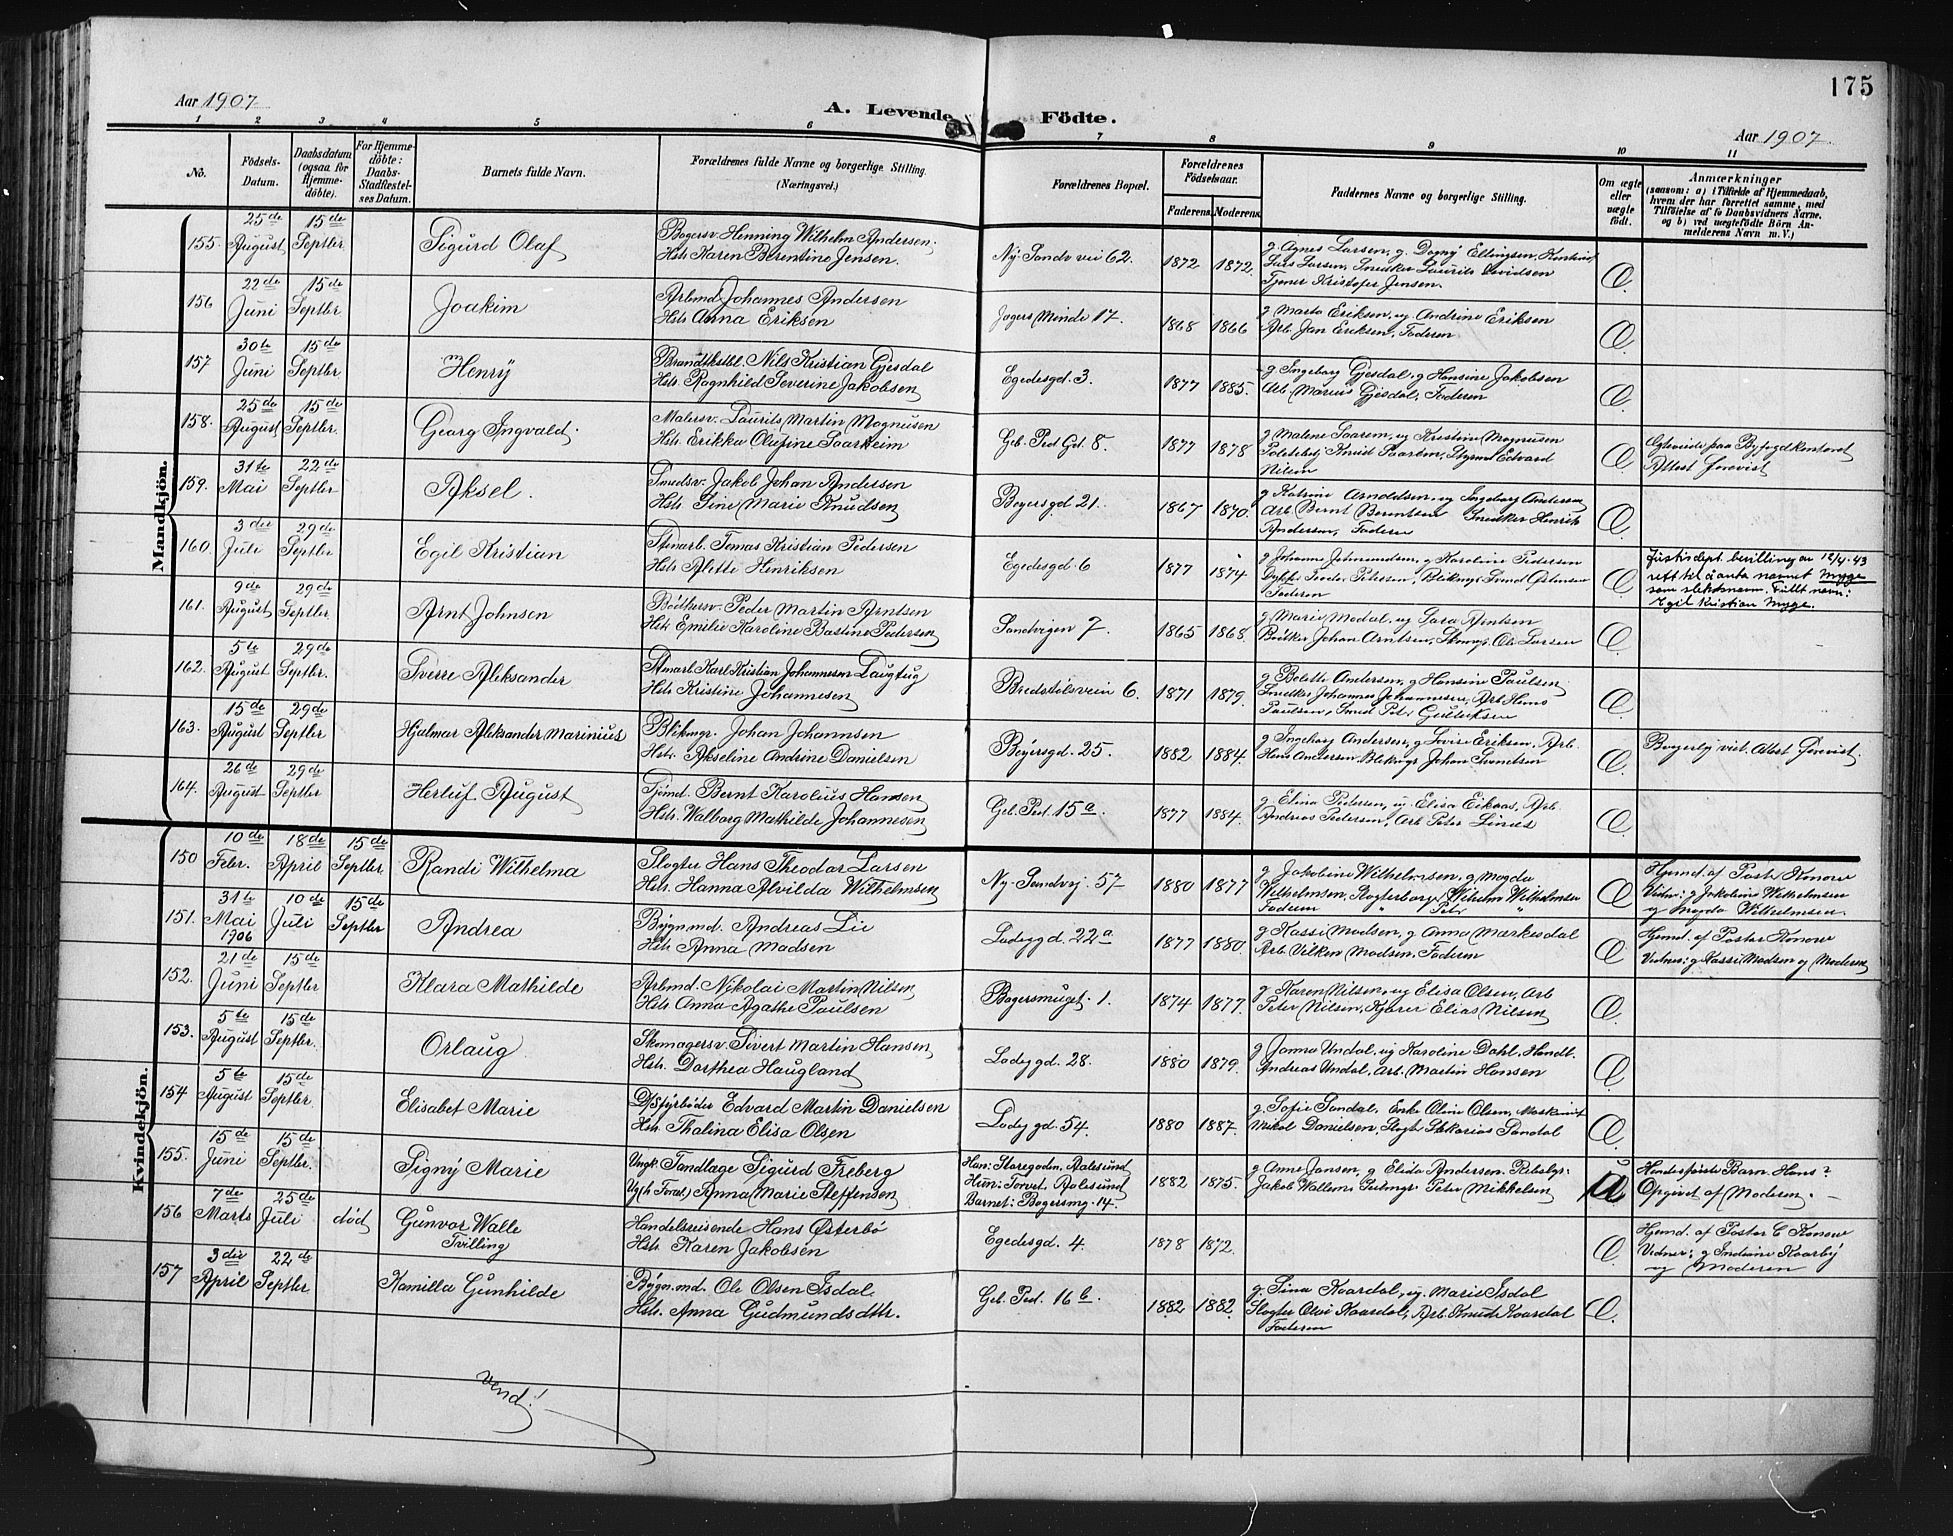 175
Aar 1907
A. Levende Födte.
Aar 1907.
1 2 3 4 5 6 7 8 9 10 11
No. Födsels-Datum. Daabsdatum (ogsaa for Hjemme-döbte). For Hjemme-döbte: Daabs-Stadfæstel-ses Datum. Barnets fulde Navn. Forældrenes fulde Navne og borgerlige Stilling. (Næringsvei.) Forældrenes Bopæl. Forældrenes Födselsaar. Faderens. Moderens. Faddernes Navne og borgerlige Stilling. Om ægte eller uægte födt. Anmærkninger (saasom: a) i Tilfælde af Hjemmedaab, hvem der har forrettet samme, med Tilföielse af to Daabsvidners Navne, og b) ved uægtefödte Börn An-melderens Navn m. V.)
Mandkjön.
155. 25de August 15de Septbr. Sigurd Olaf Bogersv. Henning Wilhelm Andersen. Ny. Sandv vei 62. 1872 1872. g Agnes Larsen, g. Dagny Ellingsen,
Hstr. Karen Berentine Jensen. Lars Larsen, Snedker Laurits Davidsen
Tjener Kristofer Jensen. Æ.
156 22de Juni 15de Septbr Joakim Arbmd Johannes Andersen Jægers Minde 17. 1868 1866 g Marta Eriksen, ug Andrine Eriksen
Hstr Anna Eriksen Arb. Jan Eriksen, Faderen Æ.
157 30te Juni 15de Septbr. Henry Brandtkstbl. Nils Kristian Gjesdal Egedesgd. 3. 1877 1885. g Ingeborg Gjesdal, g Hansine Jakobsen
Hstr. Ragnhild Severine Jakobsen Arb. Marius Gjesdal, Faderen Æ.
158. 25de August 15de Septbr. Georg Ingvald. Malersv. Laurits Martin Magnusen Geb. Ped Gd. 8. 1877 1878 g Malene Saarem, ug Kristine Magnusen
Hstr. Erikka Olufine Saarheim Knud Saarem, Styrmd Edvard
Nilsen Æ. Egteviede paa Byfogdkontoret
Attest forevist
159. 31te Mai 22de Septbr Aksel. Smedsv. Jakob Johan Andersen Bøyersgd 21. 1867 1870. g Katrine Arnoldsen, ug Ingeborg Andersen
Hstr. Sine Marie Knudsen Arb. Bernt Berentsen Snedker Henrik
Andersen, Faderen Æ
160. 3die Juli 29de Septbr Egil Kristian Stenarb. Tomas Kristian Pedersen Egedesgd 6 1877 1874 g Johanne, g Karoline Pedersen
Hstr Alette Henriksen Peder Petersen,
Faderen Æ Justisdept. bevilling av 12/4-43
rett til å anta navnet Myge
som slektsnavn. Fullt navn:
Egil Kristian Myge.
161. 9de August 29de Septbr. Arnt Johnsen Bødkersv. Peder Martin Arntsen Sandvigen 7. 1865 1868. g Marie Modal, ug Sara Arntsen
Hstr Emilie Karoline Bastine Pedersen Bødker Johan Arntsen, Skomgr. Ole Larsen Æ.
162. 5te August 29de Septbr. Sverre Aleksander Stenarb Karl Kristian Johannesen Laugtug Bredstølsveien 6. 1871 1879. g Bolette Andersen, g Hansine Paulsen
Hstr. Kristine Johannesen Snedker Johannes Johannesen, Arb. Hans
Paulsen, Smed Peter Gulliksen Æ.
163. 15de August 29de Septbr Hjalmar Aleksander Marinius Blikmgr. Johan Johannsen Bøyersgd. 25. 1882 1884. g Ingeborg Andersen, g Lovise Eriksen, Arb.
Hstr. Akseline Andrine Danielsen Hans Andersen Blekmgr Johan Svendsen Æ. Borgerlig viet. Attest forevist.
164. 26de August 29de Septbr Herluf August Tømd. Bernt Karolius Hansen Geb. Ped. 15a. 1877 1884. g Elina Pedersen, ug. Elisa Eikaas, Arb.
Hstr. Walborg Mathilde Johannesen Andreas Pedersen, Arb Peter Lines Æ.
Kvindekjön.
150 10de Febr. 18de April 15de Septbr Randi Wilhelma Slagter Hans Theodor Larsen Ny. Sandvej. 57 1880 1877 g Jakobine Wilhelmsen, g Magda
Hstr. Hanna Alvilda Wilhelmsen Wilhelmsen, Slagterborger Wilhelm Wilhelmsen
Faderen " Peter " Æ Hjemd. af Pastor Konow
Vidner: g Jakobine Wilhelmsen
og Magda Wilhelmsen.
151. 31te Mai 1906 10de Juli 15de Septbr Andrea Bygn.md. Andreas Lie Ladegd. 22a 1877 1880. g Kassi Madsen, g Anna Markesdal
Hstr. Anna Madsen Arb. Vilken Madsen, Faderen Æ Hjemd. af Pastor Konow
Vidner: g Kassi Madsen og Moderen
152. 21de Juni 15de Septbr Klara Mathilde Arbmd. Nikolai Martin Nilsen Bøgersmuget. 1. 1874 1877. g Karen Nilsen, ug Elisa Olsen, Arb
Hstr Anna Agathe Paulsen Peter Nilsen, Kjører Elias Nilsen Æ.
153. 5te August 15de Septbr. Orlaug Skomagersv. Sivert Martin Hansen Ladegd. 28. 1880 1879. g Janna Undal, ug Karoline Dahl, Handl.
Hstr. Dorthea Haugland Andreas Undal, Arb. Martin Hansen Æ.
154 5te August 15de Septbr. Elisabet Marie Dsstyrbøder Edvard Martin Danielsen Ladegd. 54. 1880 1887. g. Sofie Sandal, Enke Oline Olsen, Maskinist
Hstr. Thalina Elisa Olsen Nikol Danielsen, Slagter Sakarias Sandal Æ.
155. 15de Juni 15de Septbr. Signy Marie Ungk. Tandlæge Sigurd Freberg Han: Storegaden, Aalesund 1882 1875. g Anne Jansen, g Elida Andersen. Rebslgr.
Ug (h Forst.) Anna Marie Steffensen Hun: Torvet. Aalesund Jakob Wallem, Peter Mikkelsen
Barnet: Bøgersmg. 14. U Hendes første Barn. Hans?
Opgivet af Moderen.
156 7de Marts 25de Juli død Gunvor Walle Handelsreisende Hans Østerbø Egedesgd. 4. 1878 1872.
Tvilling Hstr. Karen Jakobsen Æ. Hjemd. af Pastor C Konow
Vidner: g Indiane Kaarby
og Moderen
157 3die April 22de Septbr Kamilla Gunhilde Bygn.md. Ole Olsen Isdal. Geb. Ped. 16b. 1882 1882. g. Sina Kaardal, ug. Marie Isdal
Hstr. Anna Gudmundsdtr. Slagter Olai Kaardal, Arb. Knud Kaardal
Faderen Æ.
Vend!